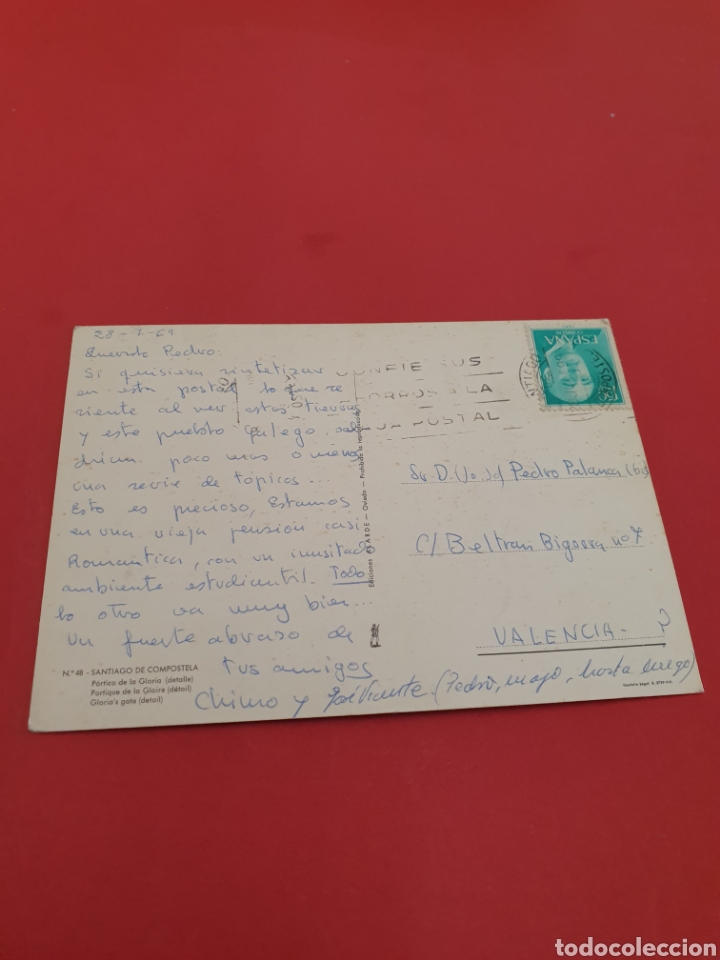 28-7-69
Querido Pedro:
Si quisiera sintetizar
en esta postal lo que se
siente al ver estas tierras
y este pueblo galego, sal
drian poco mas o menos
una serie de tópicos...
Esto es precioso, Estamos
en una vieja pensión casi
Romantica, con un inusitado
ambiente estudiantil. Todo
lo otro va muy bien...
Un fuerte abraso de
tus amigos
Chimo y José Vicente (Pedro, majo, hasta luego)
N.º 48 - SANTIAGO DE COMPOSTELA
Pórtico de la Gloria (detalle)
Portique de la Gloire (détail)
Gloria's gate (detail)
Oviedo - Prohibida la reproducción
CONFIE SUS
AHORROS A LA
CAJA POSTAL
ESPAÑA
CORREOS
Sr. D. Pedro Palanca (bis)
C/ Beltran Bigorra nº 7
VALENCIA - ?
todocoleccion